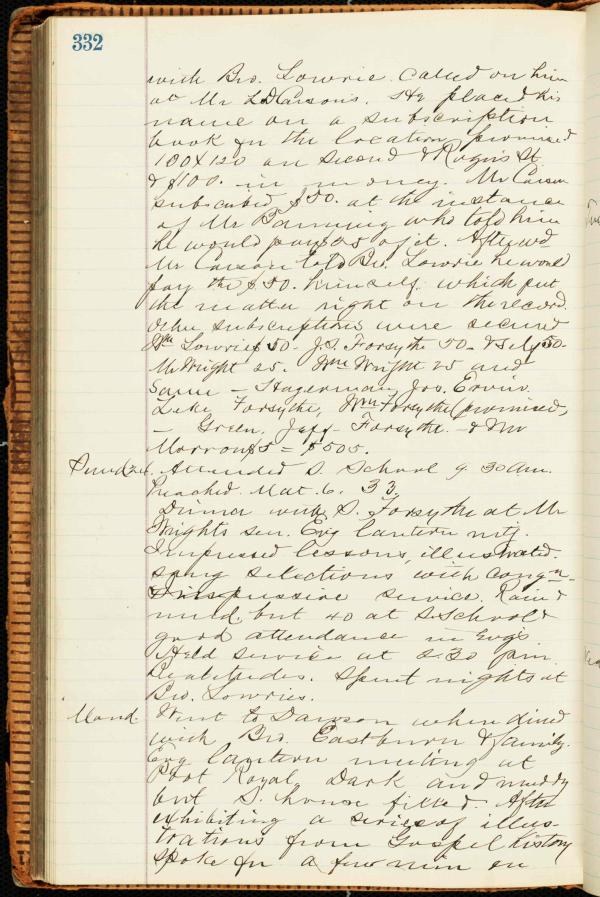 332
with Bro. Lowrie. Called on him
at Mr LD Carsons. He placed his
name on a subscription
book for the location promised
100X120 on Second & Rogers St.
& $100. in money. Mr Carson
subscribed $50. at the instance
of Mr Banning who told him
he would pay 25 of it. Afterwd
Mr Carson told Bro. Lowrie he would
pay the $50. himself. which put
the matter right on the record.
Other subscriptions were secured
Wm Lowrie $50 - J.S. Forsythe 50 - & 50-
Mr Wright 25. Wm Wright 25 and
Same - Hagerman, Jos. Ervin.
Luke Forsythe, Wm Forsythe (promised,
- Green. Jeff - Forsythe - & Mr
Morrow $5 = $505.
24. Attended S. School 9.30 am.
Preached. Mat. 6. 33.
Dinner with S. Forsythe at Mr
Wrights sen. Evg lantern mtg.
Impressed lessons, illustrated.
song selections with congn-
service. Rain &
mud, but 40 at S. School &
good attendance in Evg's
Held service at 2.30 pm.
Beatitudes. Spent nights at
Bro. Lowries.
Mond. Went to Dawson where dined
with Bro. Eastburn & family.
Evg lantern meeting at
Port Royal Dark and muddy
but S. house filled. After
exhibiting a series of illus-
trations from Gospel history
spoke for a few min on